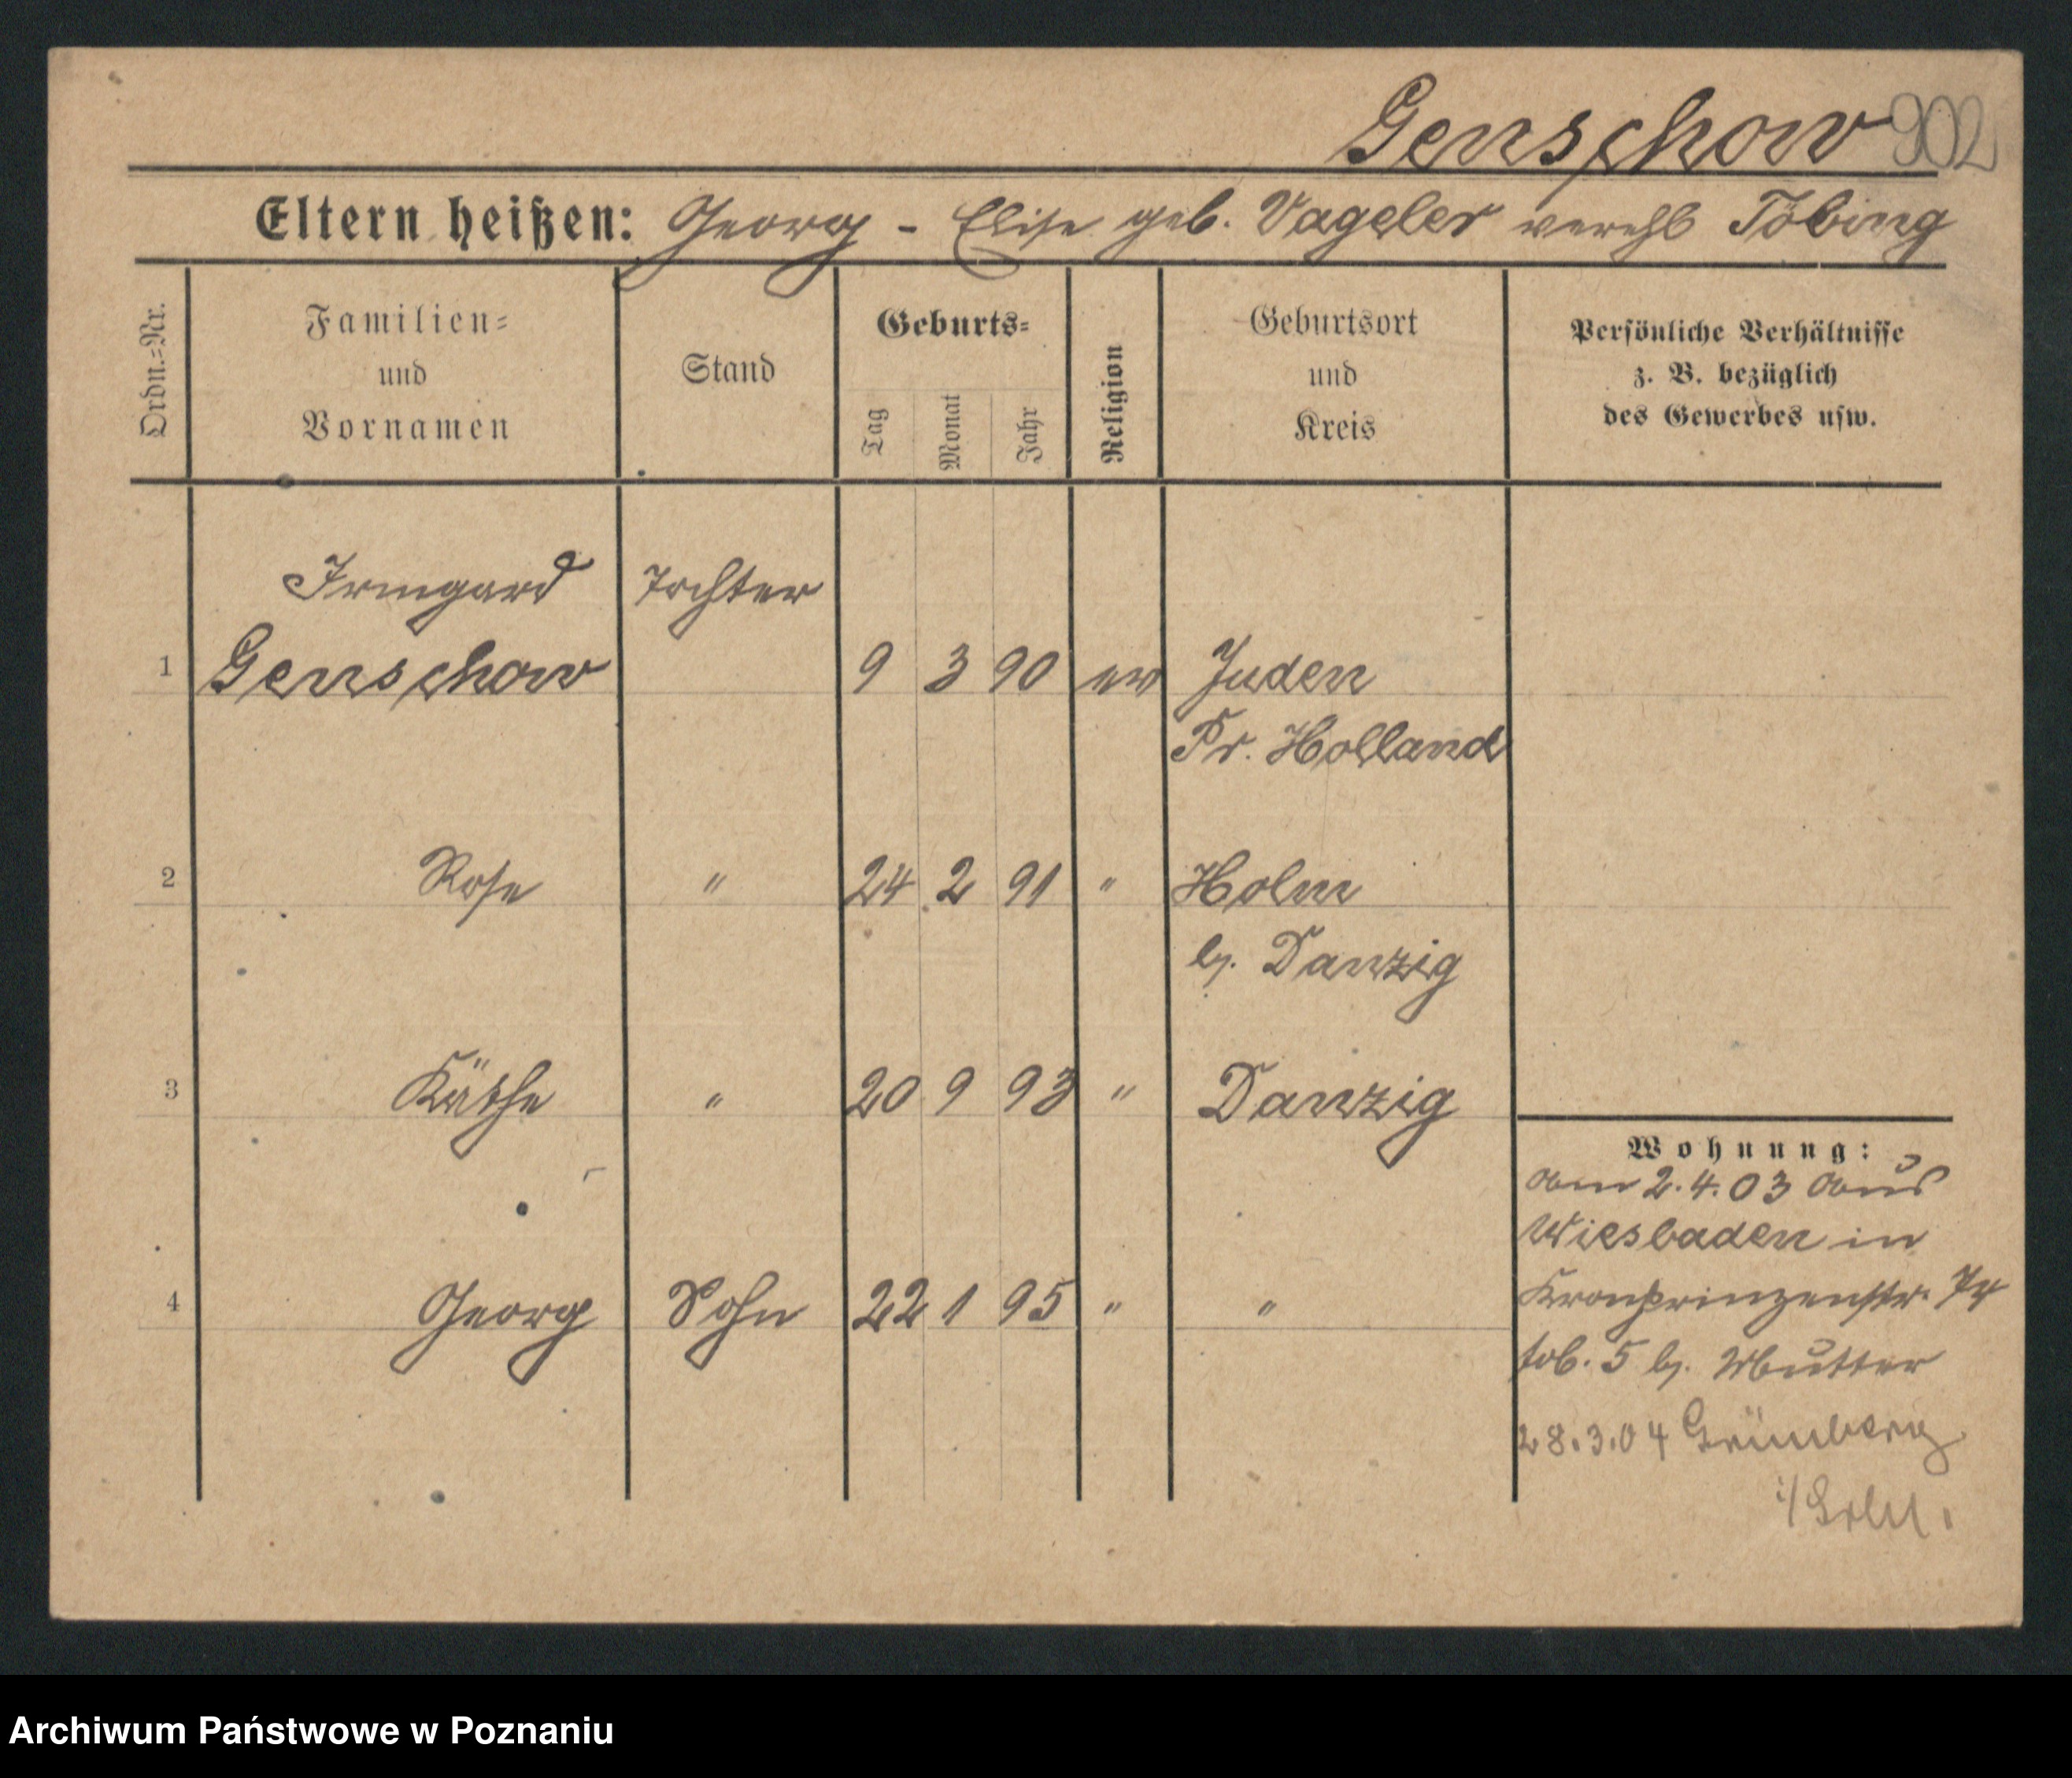 Genschow 902
Eltern heißen: Georg - Elise geb. Vageler verehl Töbing
Ordn.=Nr.
Familien=
und
Vornamen
Stand
Geburts=
Tag
Monat
Jahr
Religion
Geburtsort
und
Kreis
Persönliche Verhältnisse
z. B. bezüglich
des Gewerbes usw.
Irmgard Tochter
1 Genschow 9 3 90 ev Juden
Pr. Holland
2 Rose " 24 2 91 " Holm
b. Danzig
3 Käthe " 20 9 93 " Danzig
4 Georg Sohn 22 1 95 " "
Wohnung:
am 2.4.03 aus
Wiesbaden in
Kronprinzenstr.
5 b. Mutter
28.3.04 Grünberg
i/Schl.
Archiwum Państwowe w Poznaniu